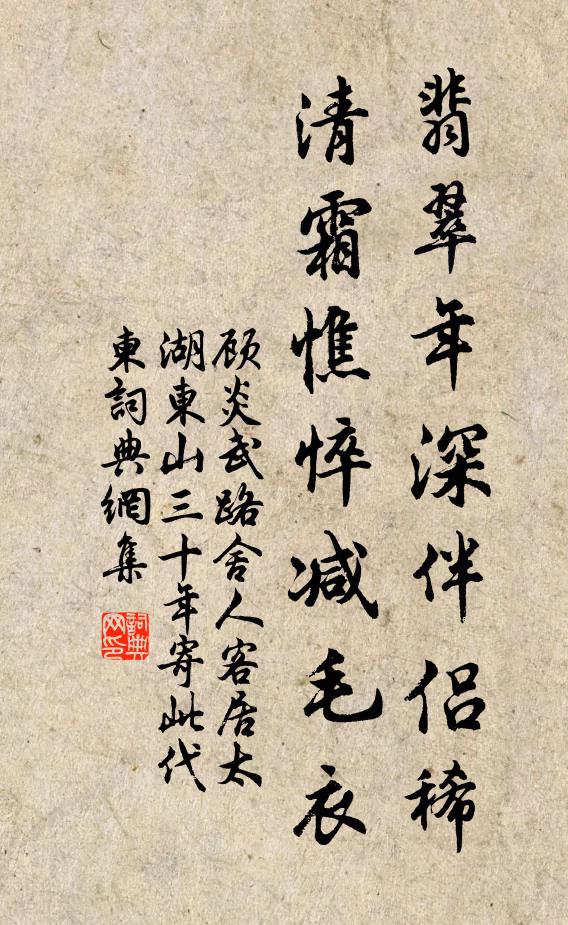 翡翠年深伴侣稀
清霜憔悴减毛衣
顾炎武路舍人客居太
湖東山三十年寄此代
東詞典網集
詞典網印